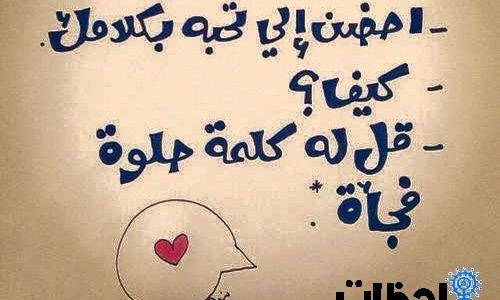 - احضن إلي تحبه بكلامك.
- كيف؟
- قل له كلمة حلوة
فجأة.*